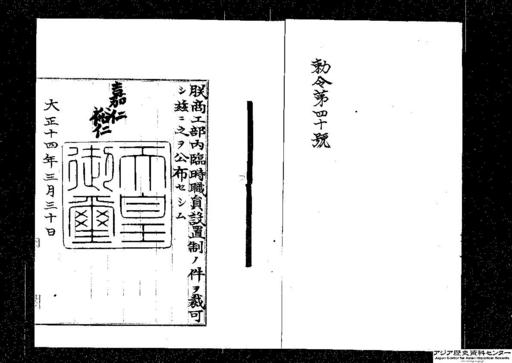 勅令第四十號
朕商工部內臨時職員設置制ノ件ヲ裁可
シ玆ニ之ヲ公布セシム
嘉仁
裕仁
天皇
御璽
大正十四年三月三十日
アジア歴史資料センター
Japan Center for Asian Historical Records